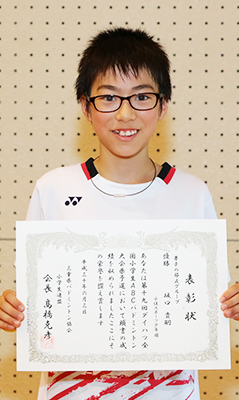 表彰状
男子の部Aグループ
優勝
坂口 貴明
あなたは第十九回ダイハツ全
国小学生ABCバドミントン
大会県予選において頭書の成
績を収められましたここにそ
の栄誉を讃え賞します
平成三十年六月三日
三重県バドミントン協会
小学生連盟
会長 高橋克彦
YONEX